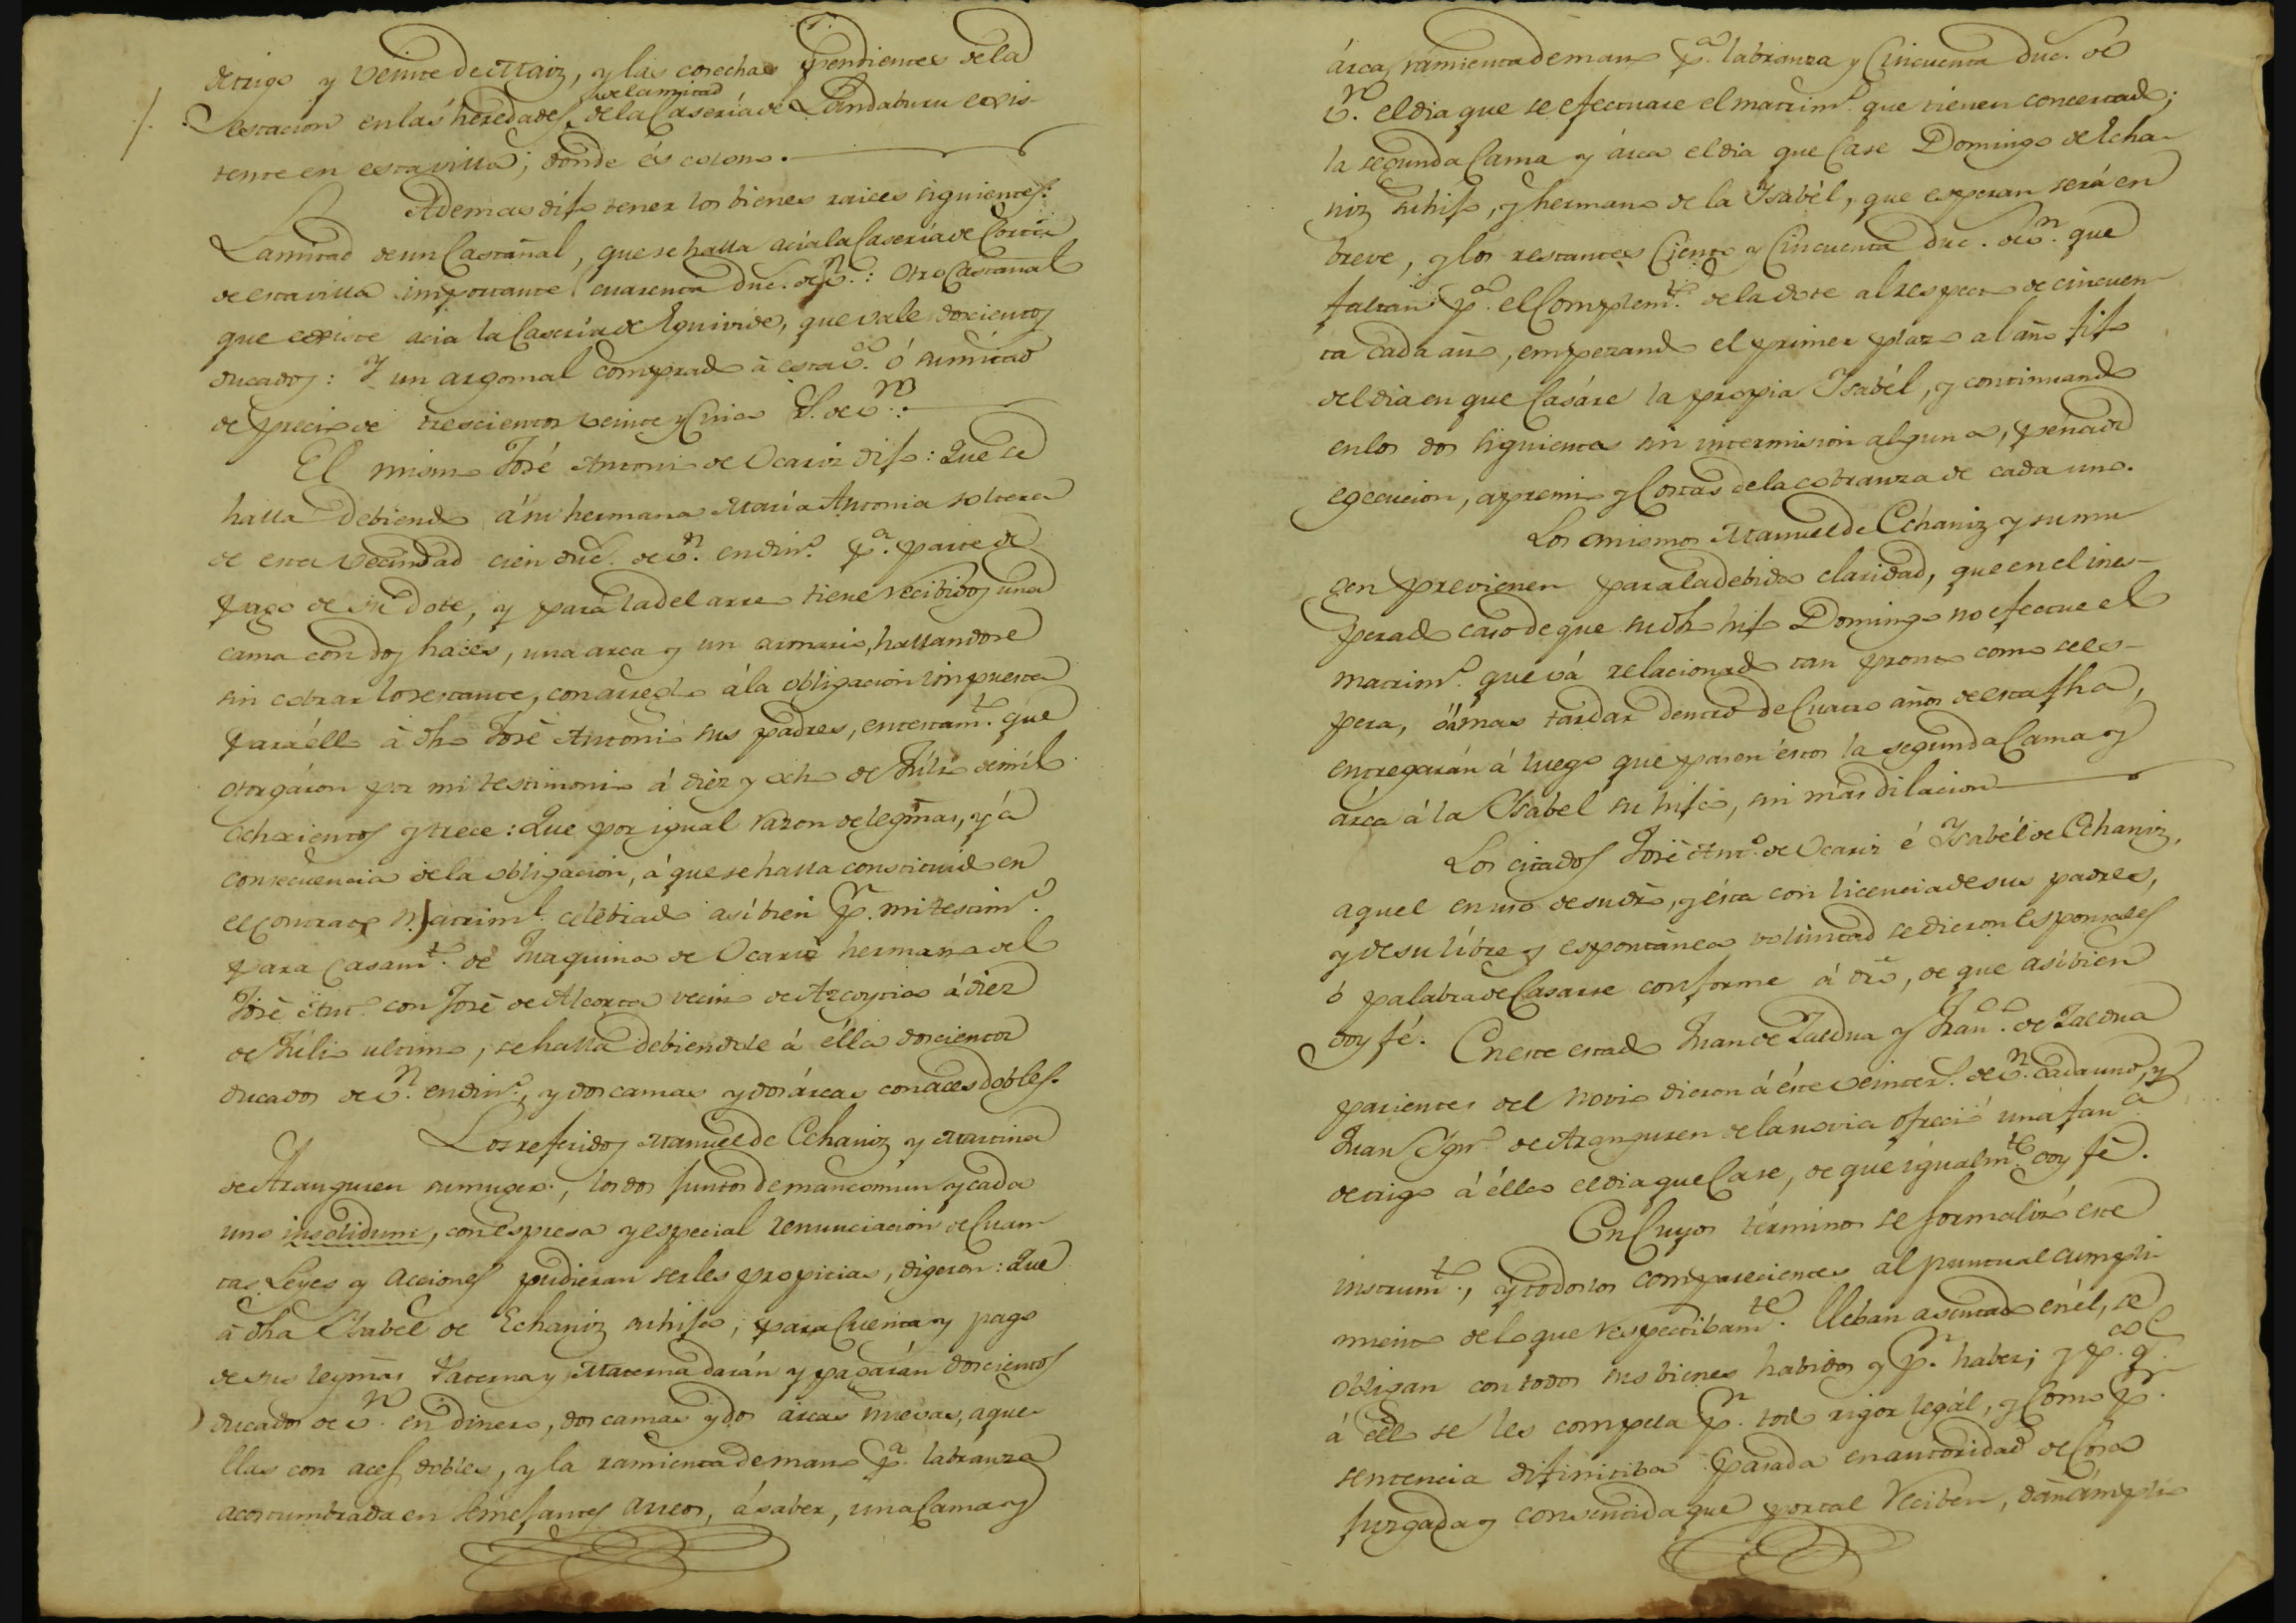 de trigo y veinte de Maiz, y las cosechas pendientes de la
de la mitad
estacion en las heredades de la Caseria de Landaburu exis-
tente en esta villa; donde és colono.
Ademas dijo tener los bienes raices siguientes:
La mitad de un Castañal, que se halla acia la Caseria de
de esta villa importante cuarenta duc.s de v.n: Otro Castañal
que existe acia la Caseria de Eguivide, que vale doscientos
ducados: Y un argomal comprado à esta v.a ó su mitad
de precio de trescientos veinte y cinco r.s de v.n:
El mismo José Antonio de Ocariz dijo: Que se
halla debiendo á su hermana Maria Antonia soltera
de esta vecindad cien duc.s de v.n en din.o p.a parte de
pago de su dote, y para la del arreo tiene recibidos una
cama con dos haces, una arca y un armario, hallandose
sin cobrar lo restante, con arreglo á la obligacion impuesta
para éllo à dho José Antonio sus padres, en testam.to que
otorgáron por mi testimonio á diez y ocho de Júlio de mil
ochocientos y trece: Que por igual razon de legmas, y á
consecuencia de la obligacion, á que se halla constituido en
el contrato Matrim.l celebrado asi bien p.r mi testim.o
para Casam.to de Juaquina de Ocariz hermana del
José Ant.o con José de Alcorta vecino de Azcoytia á diez
de Júlio ultimo, se halla debiendole á élla doscientos
ducados de v.n en din.o, y dos camas y dos árcas con aces dobles.
Los referidos Manuel de Echaniz y Martina
de Aranguren su muger, los dos juntos de mancomun y cada
uno insolidum, con espresa y especial renunciacion de Cuan-
tas Leyes y acciones pudieran serles propicias, digeron: Que
à dha Isabel de Echaniz su hija, para Cuenta y pago
de sus legmas Paterna y Materna darán y pagarán doscientos
ducados de v.n en dinero, dos camas y dos árcas nuevas, aque-
llas con aces dobles, y la ramienta de mano p.a labranza
acostumbrada en semejantes arreos, á saber, una Cama y
árca, ramienta de mano p.a labranza y Cincuenta duc.s de
v.n el dia que se efectuare el matrim.o que tienen concertado;
la segunda Cama y árca el dia que Case Domingo de Echa-
niz su hijo, y hermano de la Isabél, que esperan será en
breve, y los restantes Ciento y Cincuenta duc.s de v.n que
faltan p.a el Complem.to de la dote al respecto de cincuen-
ta cada año, empezando el primer plazo al año fijo
del dia en que Casáre la propia Isabél, y continuando
en los dos siguientes sin intermision alguna, pena de
egecucion, apremio y Costas de la cobranza de cada uno.
Los mismos Manuel de Echaniz y su mu-
ger previenen para la debida claridad, que en el ines-
perado caso de que su dho hijo Domingo no efectue el
matrim.o que vá relacionado tan pronto como se es-
pera, ó á mas tardar dentro de Cuatro años de esta fha,
entregarán á luego que pasen éstos la segunda Cama y
árca á la Isabel su hija, sin mas dilacion
Los citados José Ant.o de Ocariz é Isabél de Echaniz,
aquel en uso de su dro, y ésta con licencia de sus padres,
y de su libre y espontánea voluntad se dieron Esponsales
ó palabra de Casarse conforme á dro, de que asi bien
doy fé. En este estado Juan de Zaldua y Fran.co de Zaldua
parientes del novio dieron á éste veinte r.s de v.n cada uno, y
Juan Ign.o de Aranguren de la novia ofreció una fan.a
de trigo á élla el dia que Case, de que igualm.te doy fé.
En Cuyos términos se formalizó este
instrum.to, y todos los comparecientes al puntual cumpli-
miento de lo que respectibam.te lleban asentado en él, se
obligan con todos sus bienes habidos y p.r haber; y p.a q.e
á ello se les compela p.r todo rigor legál, y Como p.r
sentencia difinitiba pasada en autoridad de Cosa
juzgada y consentida que por tal reciben, dan ámplio